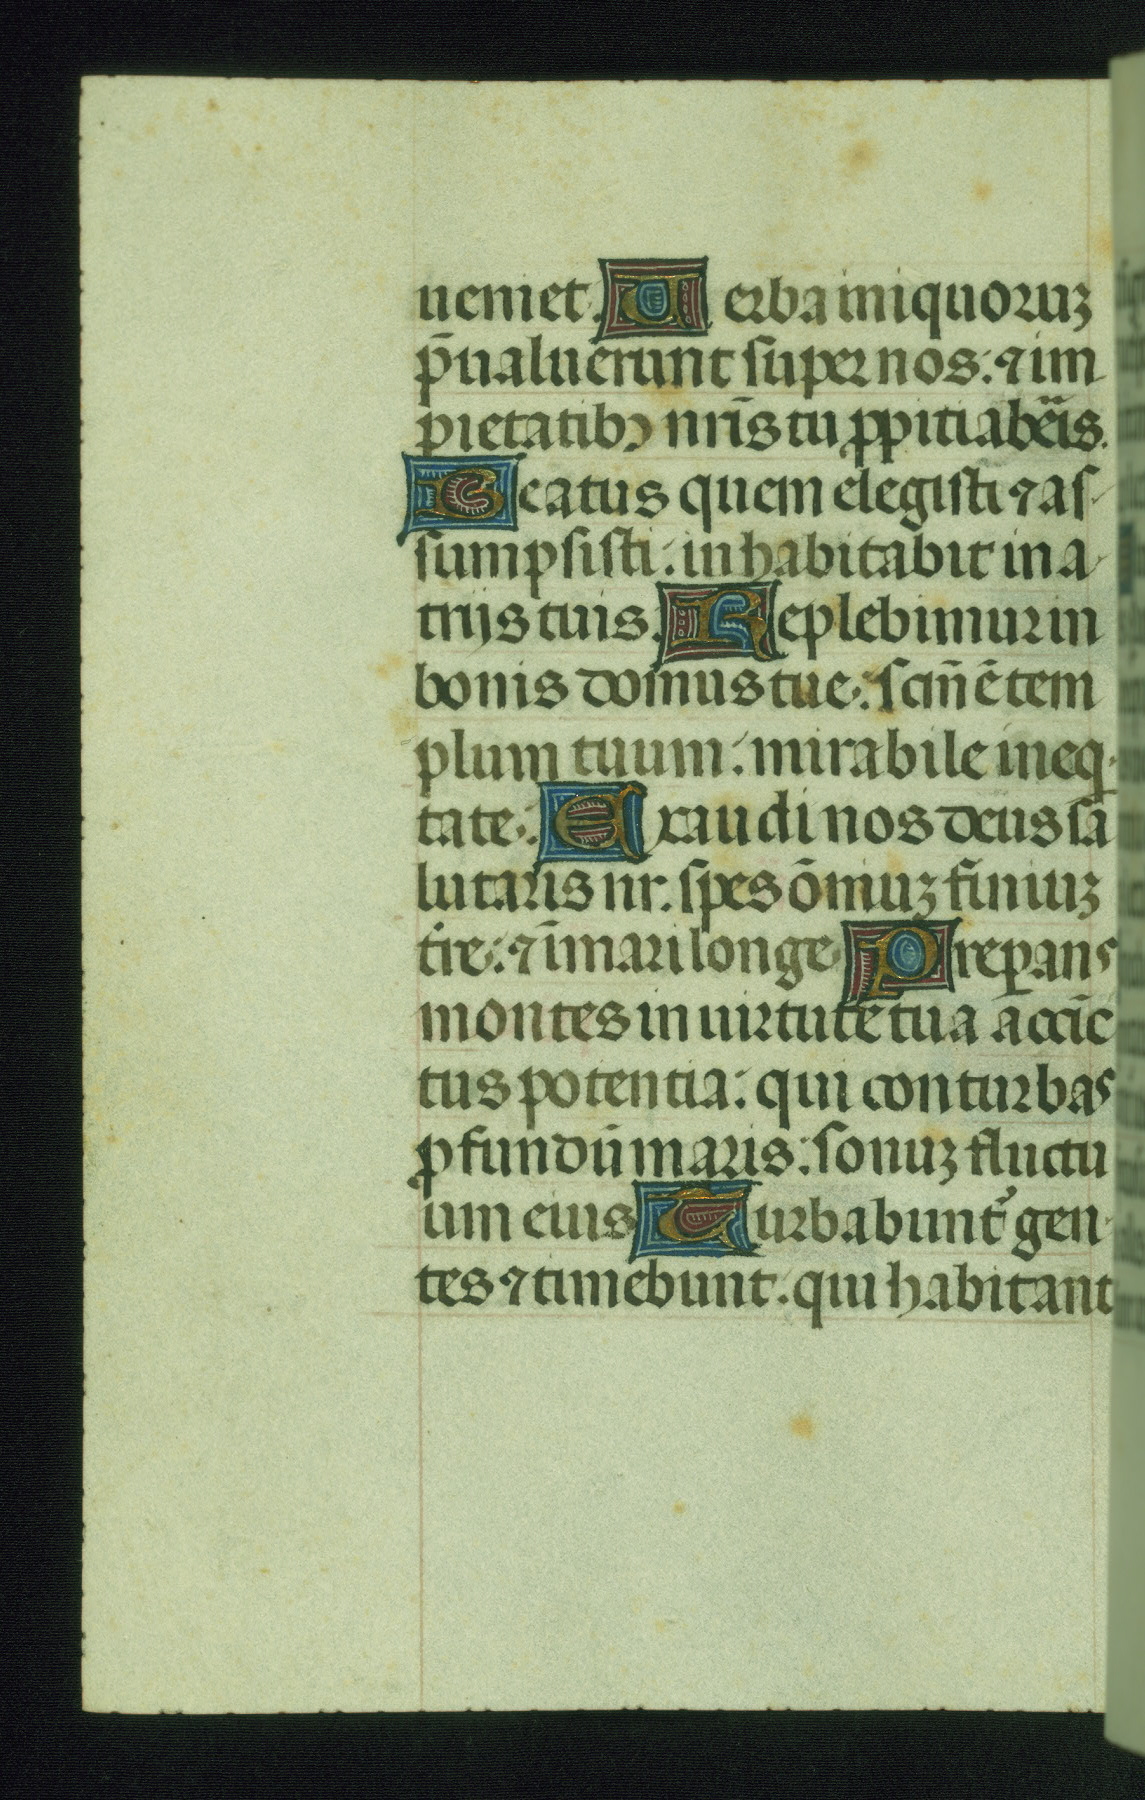 ueniet. Uerba iniquoruꝫ
p̄ualuerunt super nos: ⁊ im
pietatibꝰ nr̄is tu ꝓpitiabẽis.
Beatus quem elegisti ⁊ as-
sumpsisti: inhabitabit in a-
trijs tuis. Replebimur in
bonis domus tue: scm̄ ē tem
plum tuum: mirabile in eq-
tate. Exaudi nos deus sa
lutaris nr̄. spes om̄iuꝫ finiuꝫ
tr̄re: ⁊ ī mari longe Preꝑans
montes in uirtute tua accīc
tus potentia: qui conturbas
ꝓfundū maris: sonuꝫ fluctu
um eius Turbabunt᷑ gen-
tes ⁊ timebunt: qui habitant